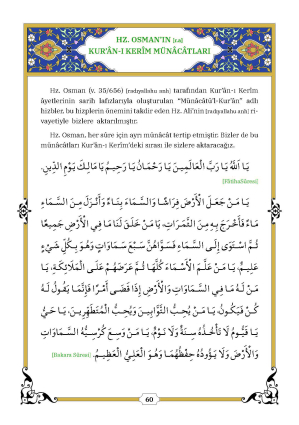 HZ. OSMAN'IN [r.a]
KUR'ÂN-I KERÎM MÜNÂCÂTLARI
Hz. Osman (v. 35/656) [radıyallahu anh] tarafından Kur'ân-ı Kerîm
âyetlerinin sarih lafızlarıyla oluşturulan "Münâcâtü'l-Kur'ân" adlı
hizbler, bu hizblerin önemini takdir eden Hz. Ali'nin [radıyallahu anh] ri-
vayetiyle bizlere aktarılmıştır.
Hz. Osman, her sûre için ayrı münâcât tertip etmiştir. Bizler de bu
münâcâtları Kur'ân-ı Kerîm'deki sırası ile sizlere aktaracağız.
يَا اَللهُ يَا رَبَّ الْعَالَمِينَ يَا رَحْمَانُ يَا رَحِيمُ يَا مَالِكَ يَوْمِ الدِّينِ.
[Fâtiha Sûresi]
يَا مَنْ جَعَلَ الْأَرْضَ فِرَاشًا وَالسَّمَاءَ بِنَاءً وَأَنْزَلَ مِنَ السَّمَاءِ
مَاءً فَأَخْرَجَ بِهِ مِنَ الثَّمَرَاتِ، يَا مَنْ خَلَقَ لَنَا مَا فِي الْأَرْضِ جَمِيعًا
ثُمَّ اسْتَوَى إِلَى السَّمَاءِ فَسَوَّاهُنَّ سَبْعَ سَمَاوَاتٍ وَهُوَ بِكُلِّ شَيْءٍ
عَلِيمٌ، يَا مَنْ عَلَّمَ الْأَسْمَاءَ كُلَّهَا ثُمَّ عَرَضَهُمْ عَلَى الْمَلَائِكَةِ، يَا
مَنْ لَهُ مَا فِي السَّمَاوَاتِ وَالْأَرْضِ إِذَا قَضَى أَمْرًا فَإِنَّمَا يَقُولُ لَهُ
كُنْ فَيَكُونُ، يَا مَنْ يُحِبُّ التَّوَّابِينَ وَيُحِبُّ الْمُتَطَهِّرِينَ، يَا حَيُّ
يَا قَيُّومُ لَا تَأْخُذُهُ سِنَةٌ وَلَا نَوْمٌ، يَا مَنْ وَسِعَ كُرْسِيُّهُ السَّمَاوَاتِ
وَالْأَرْضَ وَلَا يَؤُودُهُ حِفْظُهُمَا وَهُوَ الْعَلِيُّ الْعَظِيمُ. [Bakara Sûresi]
60